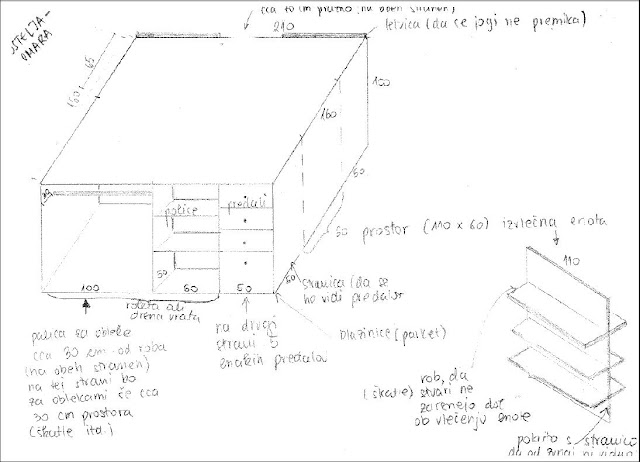 POSTELJA-
OMARA
cca 10 cm prazno (na obeh straneh)
210
letvica (da se jogi ne premika)
65
160
100
160
50
police
predali
50
50
prostor (110 x 60) izvlečna enota
110
100
60
50
50
stranica (da se
ne vidi predalov
roleta ali
drsna vrata
palica za obleke
cca 30 cm od roba
(na obeh straneh)
na tej strani bo
za oblekami še cca
30 cm prostora
(škatle itd.)
na drugi
strani 5
enakih predalov
blazinice (parket)
rob, da
(škatle) stvari ne
zdrsnejo dol
ob vlečenju enote
pokrito s stranico
da od zunaj ni vidno